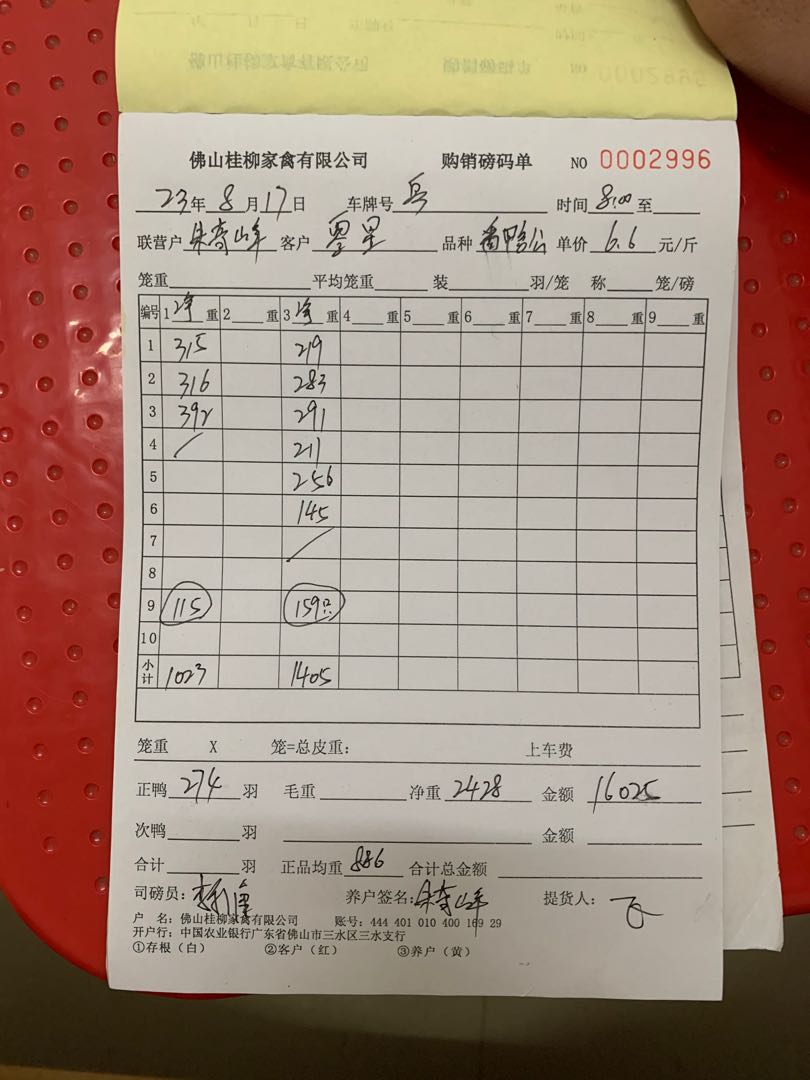 佛山桂柳家禽有限公司 购销磅码单 NO 0002996
23年8月17日 车牌号 时间8:00至
联营户 朱奇峰 客户 品种 番鸭公 单价 6.6 元/斤
笼重 平均笼重 装 羽/笼 称 笼/磅
编号 1 净 重 2 重 3 净 重 4 重 5 重 6 重 7 重 8 重 9 重
1 315 219
2 316 283
3 392 291
4 / 211
5 256
6 145
7 /
8
9 115 159只
10
小计 1023 1405
笼重 X 笼=总皮重: 上车费
正鸭 274 羽 毛重 净重 2428 金额 16025
次鸭 羽 金额
合计 羽 正品均重 886 合计总金额
司磅员: 养户签名: 朱奇峰 提货人:
户 名: 佛山桂柳家禽有限公司 账号: 444 401 010 400 169 29
开户行: 中国农业银行广东省佛山市三水区三水支行
①存根(白) ②客户(红) ③养户(黄)